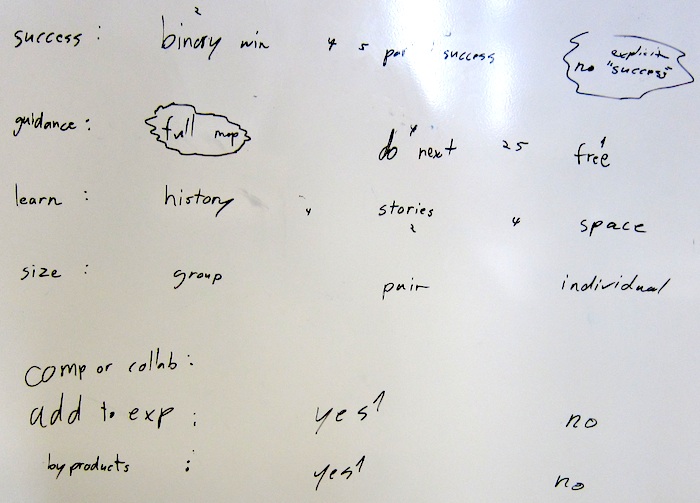 2
success : binary win 4 5 success explicit
no "success"
guidance : full map do next 25 free
4 1
learn : history 4 stories 4 space
2
size : group pair individual
comp or collab :
add to exp : yes no
by products : yes no